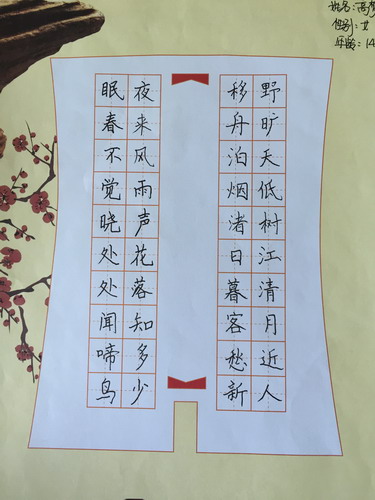 姓名:高
性别:女
年龄:14
眠春不觉晓处处闻啼鸟
夜来风雨声花落知多少
移舟泊烟渚日暮客愁新
野旷天低树江清月近人